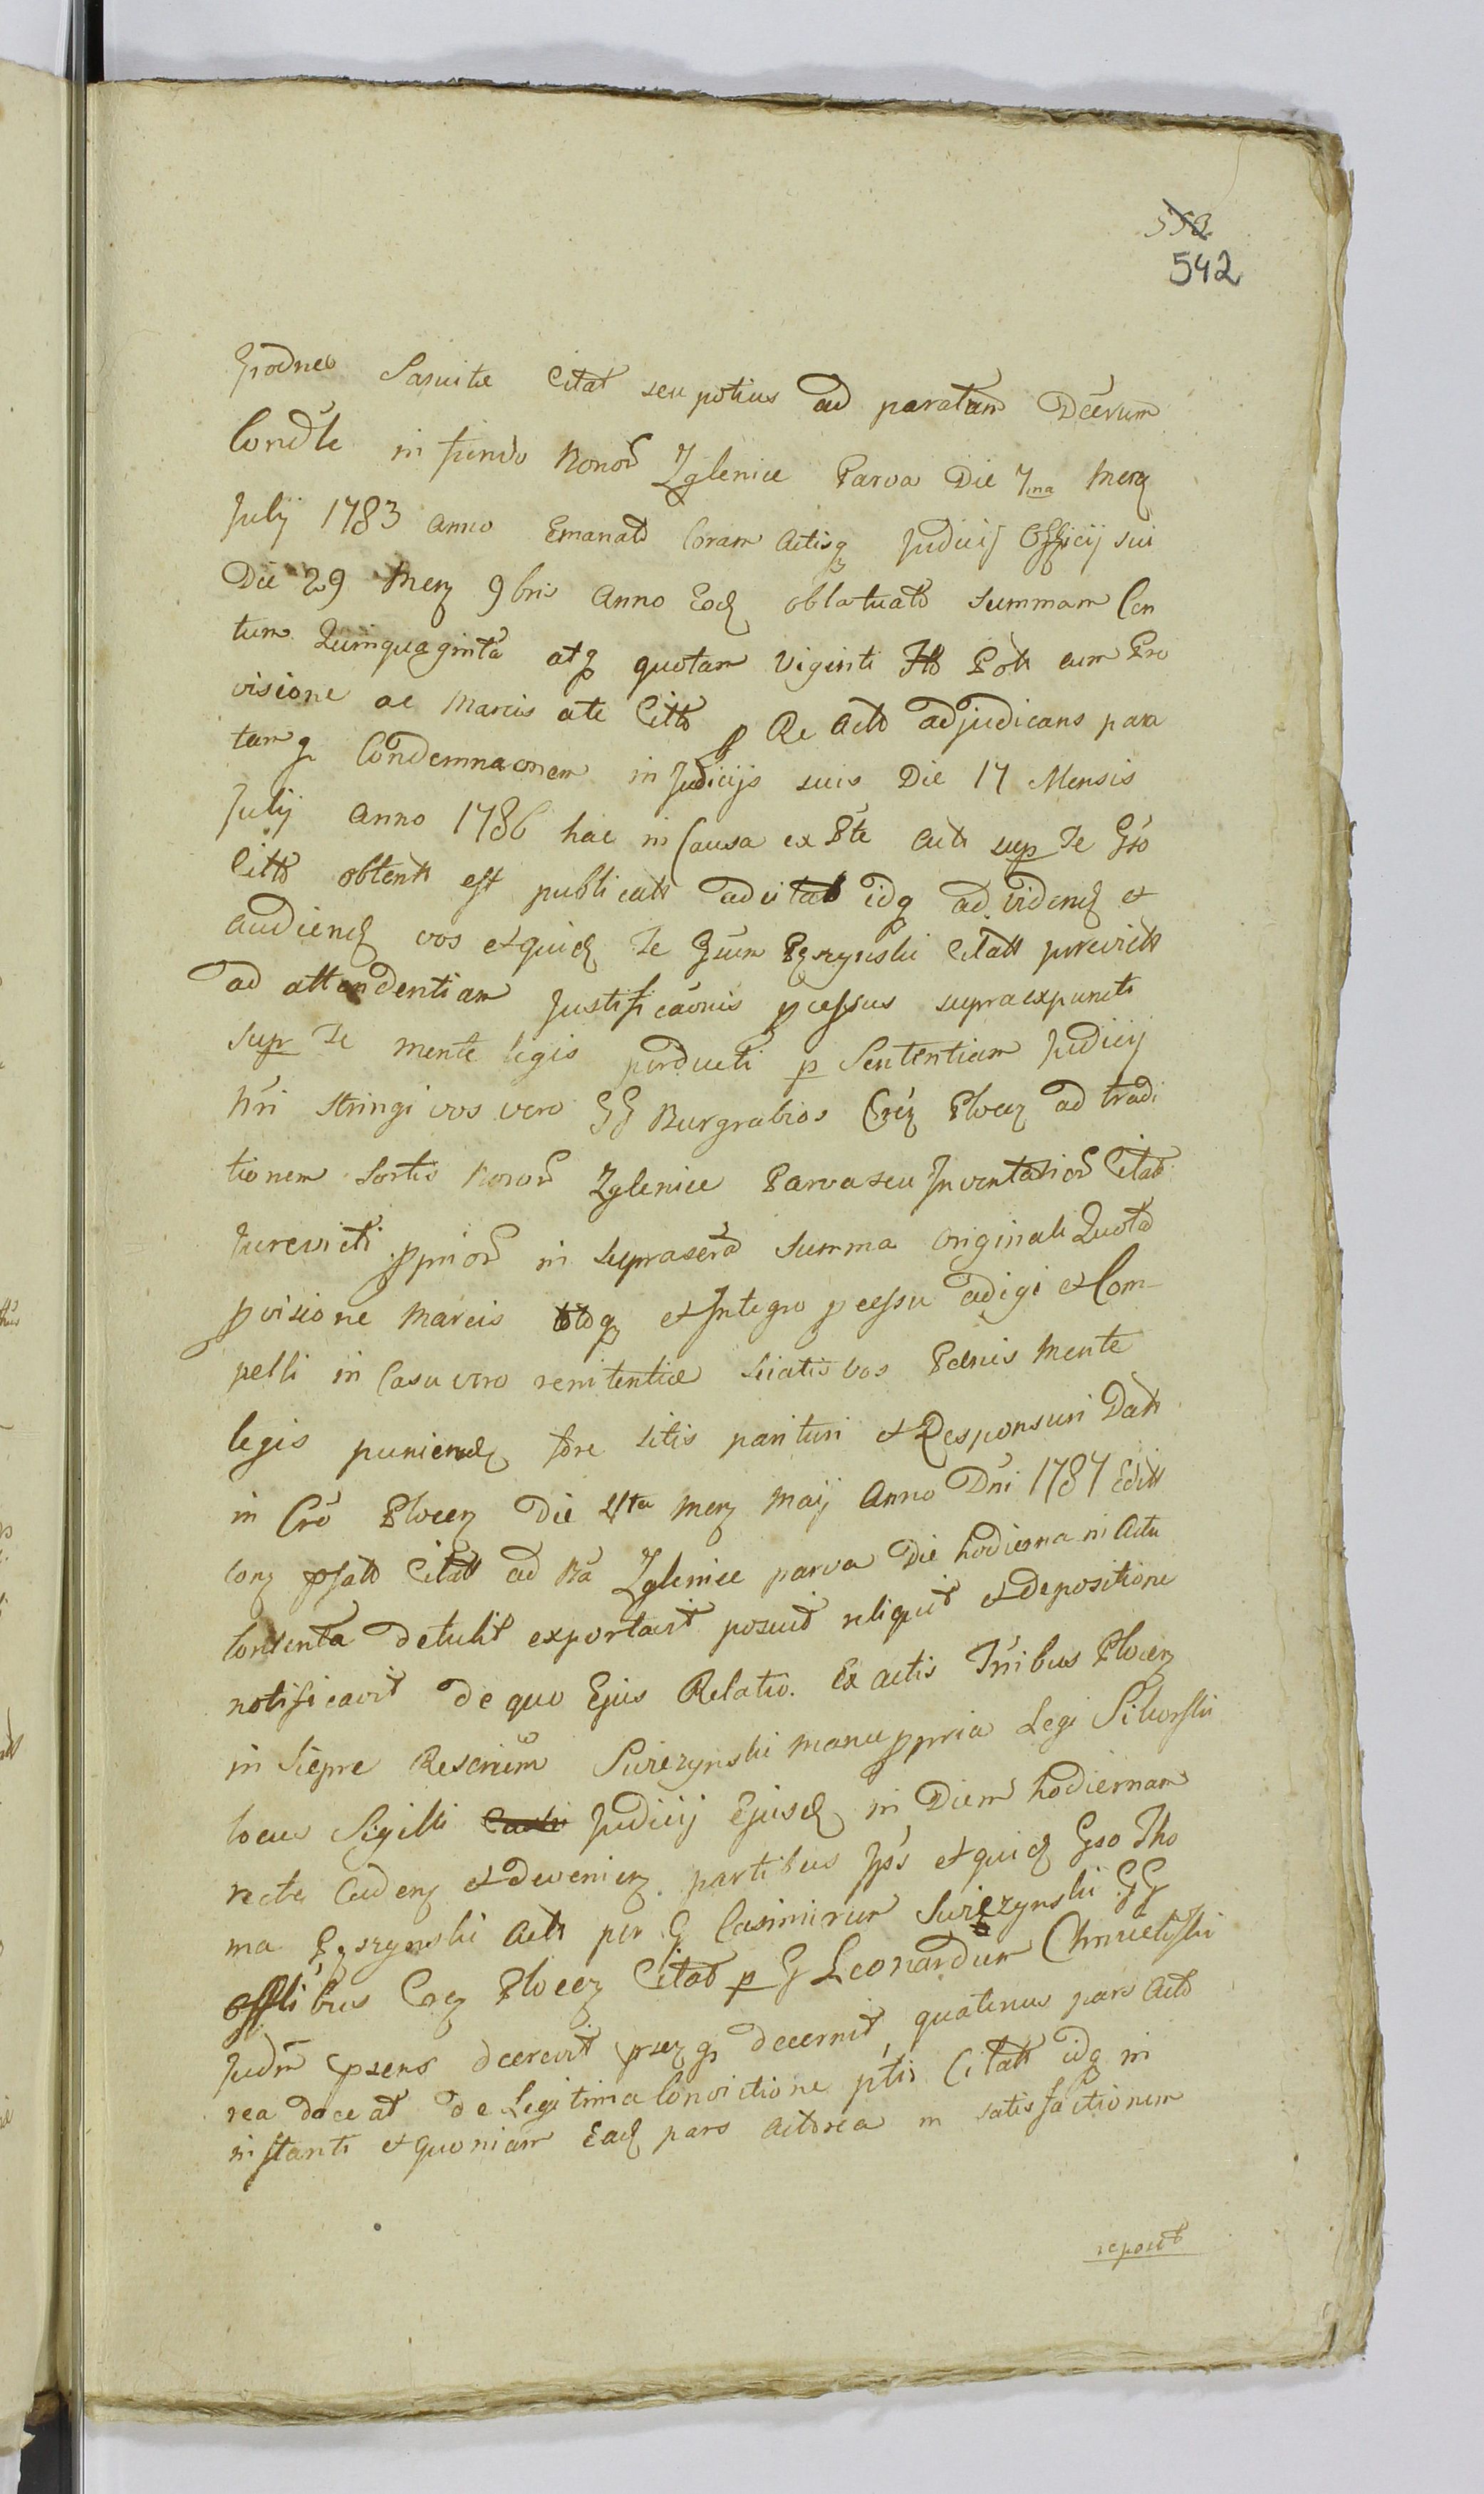 553
542
Sarnitæ Citat seu potius ad paratam Dcerum
Condle in fundo Bonor Zglenice Parva Die 7ma Menz
Julij 1783 anno Emanato Coram Actisq Judicij Officij sui
Die 29 Menz 9bris Anno Eod oblatuato summam Cen
tum Quinquaginta atq quotam viginti Flo Poll cum Pro
visione ac Marcis a te Citto p Re Acto adjudicans para
tamq Condemnaonem in Judicijs suis Die 17 Mensis
Julij Anno 1786 hac in Causa ex Pte Act sup Te Gso
Citto obtent est publicatt ad idq ad vidend et
audiend vos et quid Te Gsum Pęszynski Citatt jurevictt
ad attendentiam Justificaonis pcessus supraexpuncti
Supr Te mente legis perducti p Sententiam Judicij
Nri stringi vos vero GG Burgrabios Crēz Plocēz ad tradi
tionem Sortis Bonor Zglenice Parva seu Inventarior Citat
Jurevicti ppriор in suprascra Summa originali Quota
pvisione Marcis totoq et Integro pcessu adigi et Com-
pelli in Casu vero renitentiæ sciatis vos Pænis mente
legis puniend fore sitis parituri et Responsuri Datt
in Cro Plocez Die 4ta Menz Maij Anno Dni 1787 Editt
conz psatt Citatt ad Bā Zglenice parva Die hodierna in Actu
contenta detulit exportavit posuit reliquit et depositione
notificavit de quo Ejus Relatio. Ex actis Trribus Plocēz
in Siepre Rescriūm Swiezynski manu ppria Legi Sikorski
locus Sigilli Judicij Ejusd in Diem hodiernam
recte Cadenz et devenienz partibus Ipsis et quid Gso Tho
ma Pęszynski Actt per G Casimirum Swiezynski GG
offlibus Crez Plocez Citat p G Leonardum Chmielewski
Judm psens dcerevit pszq decernit quatenus pars acto
rea doceat de Legitima Convictione ptis Citatt idq in
instanti et quoniam Ead pars actorea in satisfactionem
reposit